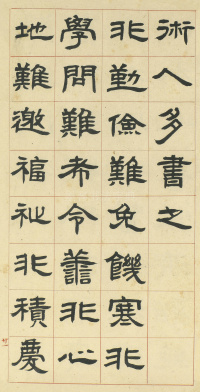 術人多書之
非勤儉難免饑寒非
學問難希令譱非心
地難邀福祉非積慶